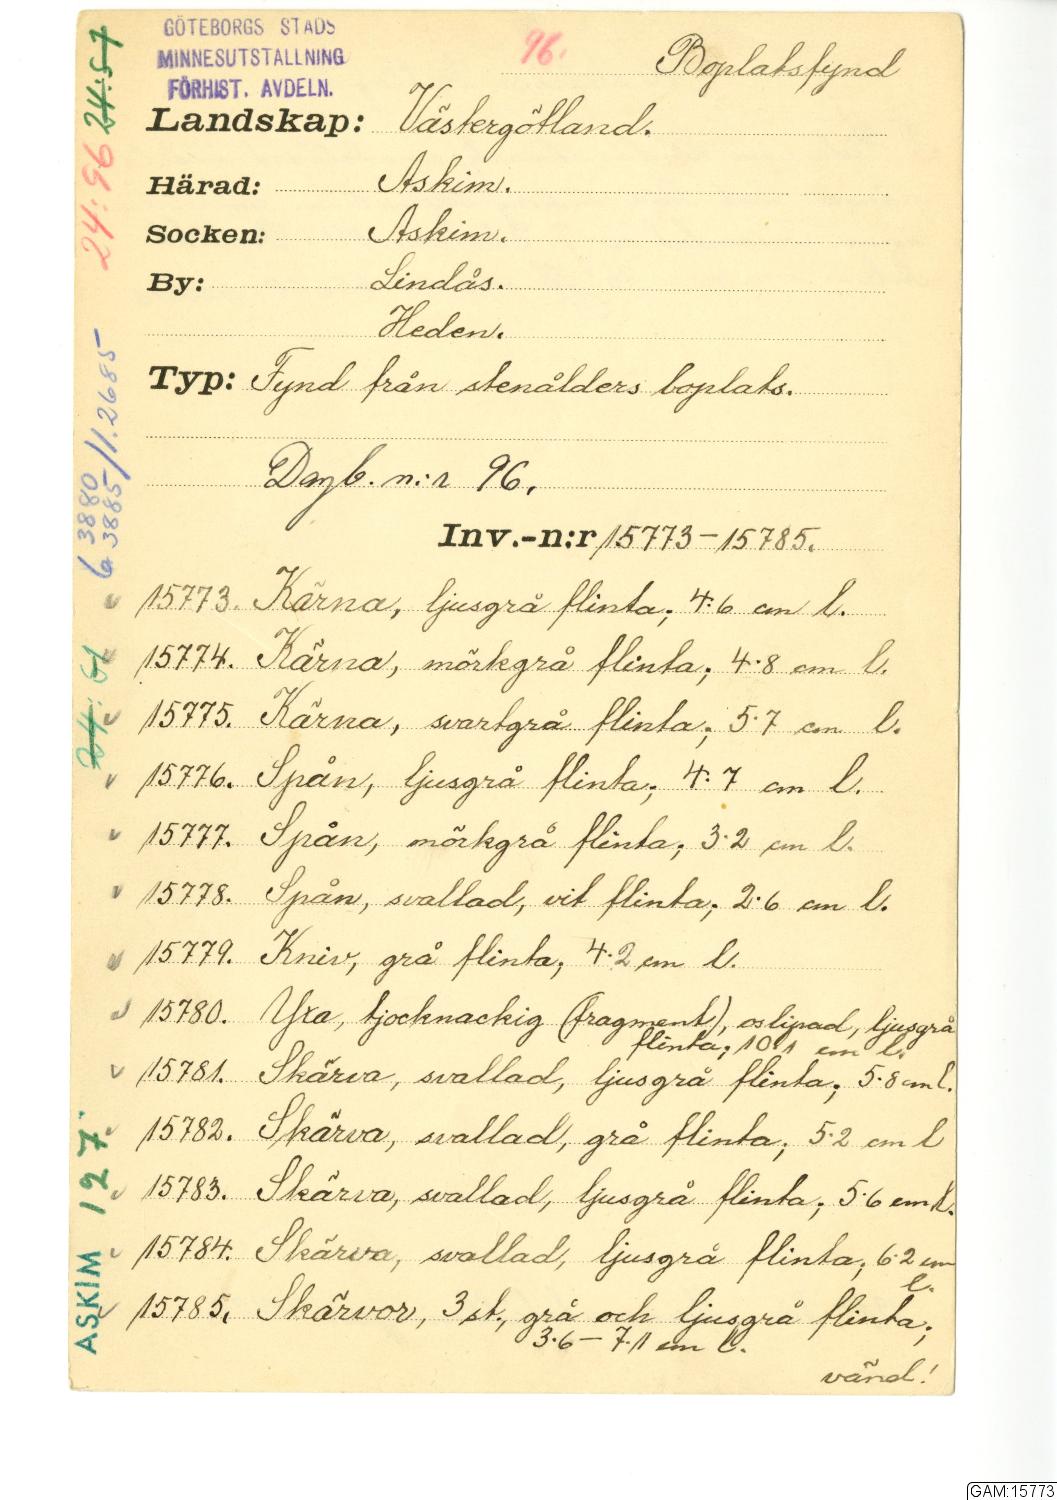 GÖTEBORGS STADS
MINNESUTSTÄLLNING
FÖRHIST. AVDELN.
96.
Boplatsfynd
Landskap: Västergötland.
Härad: Askim.
Socken: Askim.
By: Lindås.
Heden.
Typ: Fynd från stenålders boplats.
Dagb. n:r 96.
Inv.-n:r 15773-15785.
15773. Kärna, ljusgrå flinta; 4·6 cm l.
15774. Kärna, mörkgrå flinta; 4·8 cm l.
15775. Kärna, svartgrå flinta; 5·7 cm l.
15776. Spån, ljusgrå flinta; 4·7 cm l.
15777. Spån, mörkgrå flinta; 3·2 cm l.
15778. Spån, svallad, vit flinta; 2·6 cm l.
15779. Kniv, grå flinta; 4·2 cm l.
15780. Yxa, tjocknackig (fragment), oslipad, ljusgrå
flinta; 10·1 cm l.
15781. Skärva, svallad, ljusgrå flinta; 5·8 cm l.
15782. Skärva, svallad, grå flinta; 5·2 cm l
15783. Skärva, svallad, ljusgrå flinta; 5·6 cm l.
15784. Skärva, svallad, ljusgrå flinta; 6·2 cm
l.
15785. Skärvor, 3 st., grå och ljusgrå flinta;
3·6 – 7·1 cm l.
vänd!
24:57
24:96
6 3880
3885/1.2685
24:61
ASKIM 127
GAM:15773